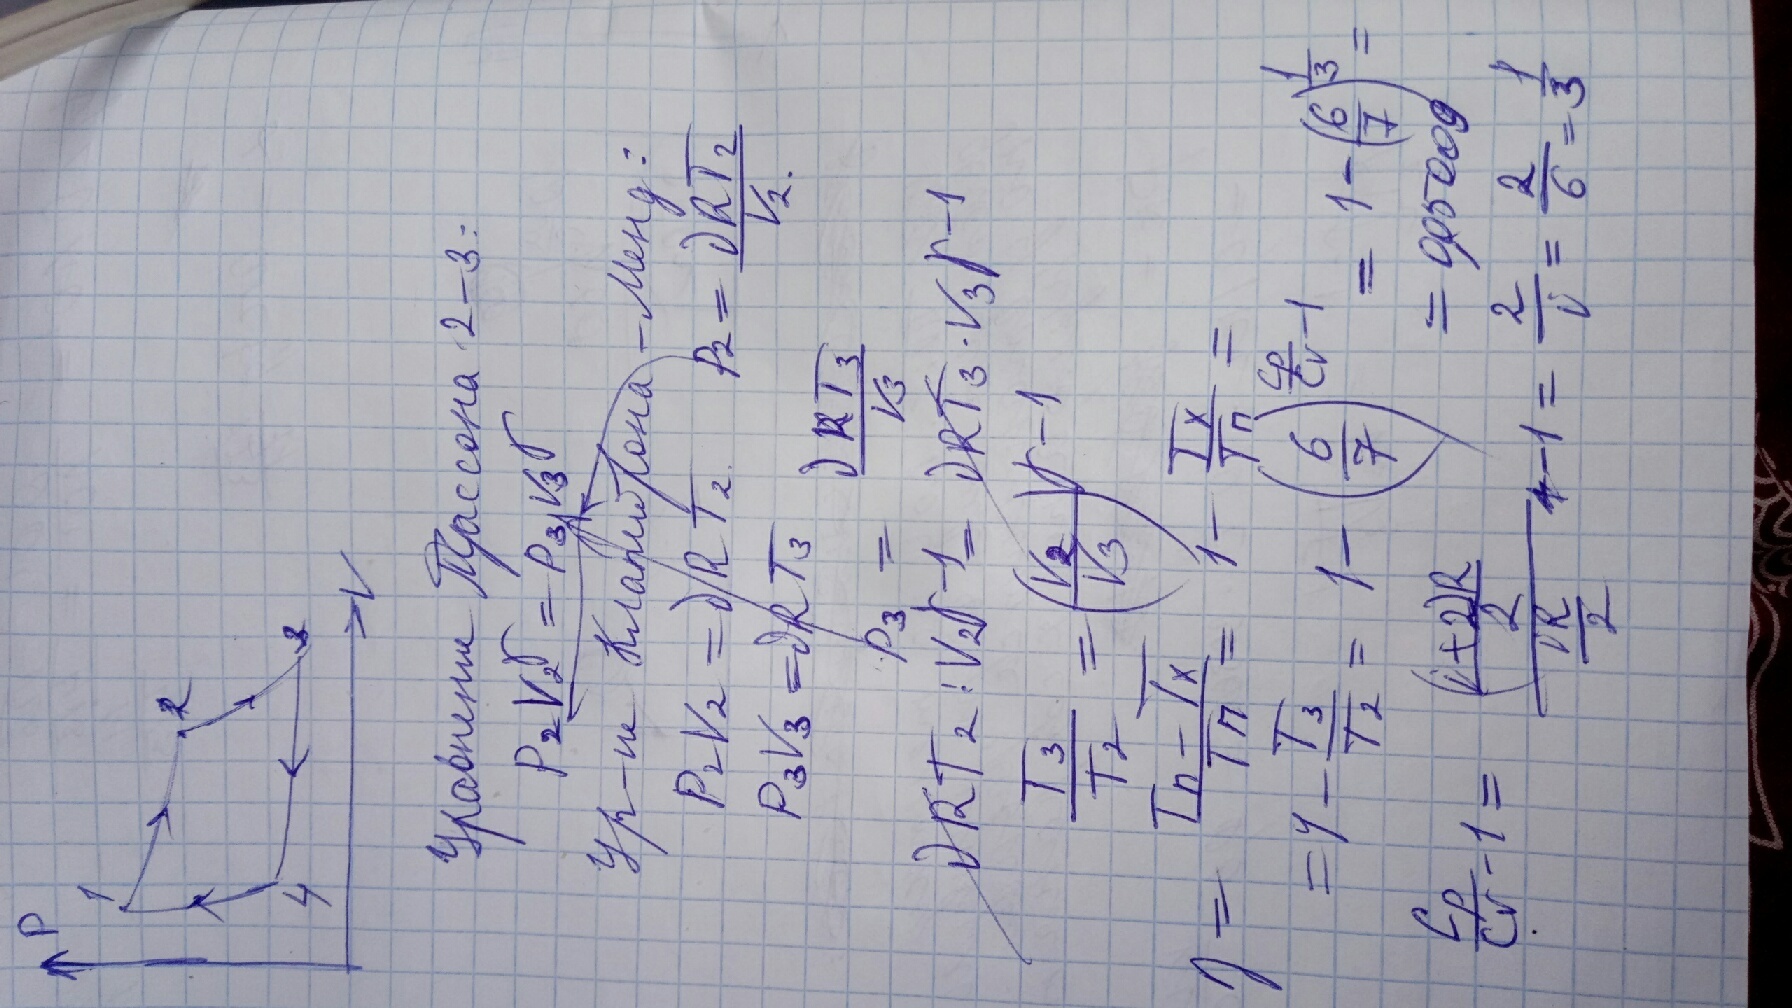 P
1
2
3
4
V
Уравнение Пуассона 2-3:
P₂V₂^γ = P₃V₃^γ
Ур-и Клапейрона-Менд:
P₂V₂ = νRT₂ P₂ = νRT₂/V₂.
P₃V₃ = νRT₃
P₃ = νRT₃/V₃
νRT₂·V₂^γ-1 = νRT₃·V₃^γ-1
T₃/T₂ = (V₂/V₃)^γ-1
η = (Tп - Tх)/Tп = 1 - Tх/Tп =
= 1 - T₃/T₂ = 1 - (6/7)^(Cp/Cv - 1) = 1 - (6/7)^1/3 =
= 0,05009
Cp/Cv - 1 = ((i+2)R/2)/(iR/2) - 1 = 2/i = 2/6 = 1/3